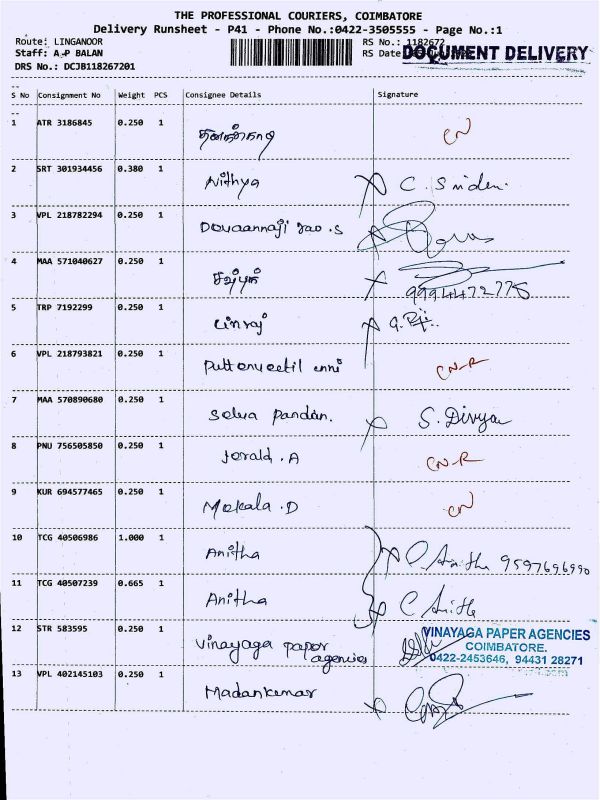 THE PROFESSIONAL COURIERS, COIMBATORE
Delivery Runsheet - P41 - Phone No.:0422-3505555 - Page No.:1
Route: LINGANOOR RS No.: 1182672
Staff: A.P BALAN RS Date DOCUMENT DELIVERY
DRS No.: DCJB118267201
S No Consignment No Weight PCS Consignee Details Signature
1 ATR 3186845 0.250 1 CN
2 SRT 301934456 0.380 1 Nithya C. Sniden.
3 VPL 218782294 0.250 1 Devaannaji rao .S
4 MAA 571040627 0.250 1 9994472775
5 TRP 7192299 0.250 1 Linraj G. Rji..
6 VPL 218793821 0.250 1 CN-R
7 MAA 570890680 0.250 1 Selva pandan. S. Divya
8 PNU 756505850 0.250 1 Jorald . A CN-R
9 KUR 694577465 0.250 1 Mekala .D CN
10 TCG 40506986 1.000 1 Anitha 9597696990
11 TCG 40507239 0.665 1 Anitha C Anith
12 STR 583595 0.250 1 Vinayaga paper agencies VINAYAGA PAPER AGENCIES
COIMBATORE.
0422-2453646, 94431 28271
13 VPL 402145103 0.250 1 Madankumar